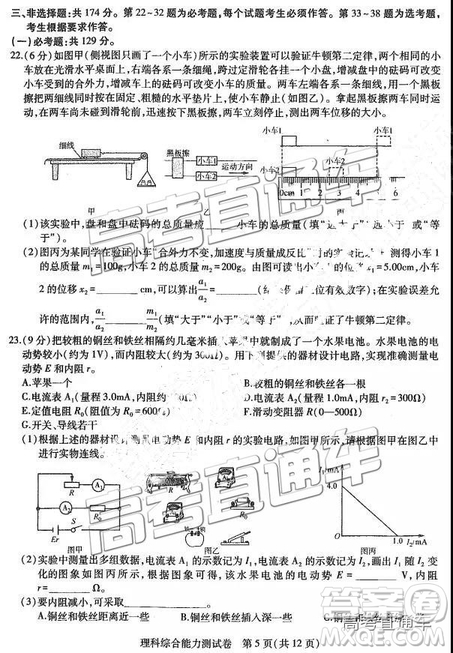 三、非选择题:共 174 分。第 22~32 题为必考题,每个试题考生必须作答。第 33~38 题为选考题,
考生根据要求作答。
(一)必考题:共 129 分。
22.(6 分)如图甲(侧视图只画了一个小车)所示的实验装置可以验证牛顿第二定律,两个相同的小
车放在光滑水平桌面上,右端各系一条细绳,跨过定滑轮各挂一个小盘,增减盘中的砝码可改变
小车受到的合外力,增减车上的砝码可改变小车质量。两车左端各系条细线,用一个黑板
擦把两细线同时按在固定、粗糙的水平垫片上,使小车静止(如图乙)。拿起黑板擦两车同时运
动,在两车尚未碰到滑轮前,迅速按下黑板擦,两车立刻停止,测出两车位移的大小。
黑板擦
小车1
小车2
运动方向
小车1
小车2
0cm 1 2 3 4 5 6
甲
(1)该实验中,盘和盘中砝码的总质量应 小车的总质量(填“远大于”“远小于”或“等
于”)。
(2)图丙为某同学在验证小车合外力不变,加速度与质量成反比
测得小车 1
的总质量 m₁=100g,小车 2 的总质量 m₂=200g。由图可读出小车 1 的位移 x₁=5.00cm,小车
2 的位移 x₂= cm,可以算出 a₁/a₂ = (结果保留 3 位有效数字);在实验误差允
许的范围内,a₁/a₂ m₂/m₁(填“大于”“小于”或“等于”)。
23.(9 分)把较粗的铜丝和铁丝相隔约几毫米插入苹果中就制成了一个水果电池。水果电池的电
动势较小(约为 1V),而内阻较大(约为 300Ω)。用下列提供的器材设计电路,实现准确测量电
动势 E 和内阻 r。
A.苹果一个
B.较粗的铜丝和铁丝各一根
C.电流表 A₁(量程 3.0mA,内阻较小)
D.电流表 A₂(量程 1.0mA,内阻 r₂=300Ω)
E.定值电阻 R₀(R₀=600Ω)
F.滑动变阻器 R(0—500Ω)
G.开关、导线若干
(1)根据上述的器材设计测量电动势 E 和内阻 r 的实验电路,如图甲所示,请根据图甲在图乙中
进行实物连线。
R
A₁
A₂
R₀
E r
S
R
R₀
1.0
I₁/mA
图甲
图乙
图丙
(2)实验中测量出多组数据,电流表 A₁ 的示数记为 I₁,电流表 A₂ 的示数记为 I₂,画出 I₁ 随 I₂ 变
化的图象如图丙所示,根据图象可以求出,该水果电池的电动势为 E= V,内阻为
r= Ω。
(3)要使内阻减小,可采用的方法有
A.铜丝和铁丝距离近一些
B.铜丝和铁丝插入深一些
理科综合能力测试卷 第 5 页(共 12 页)
高考直通车
高考直通车
高考直通车